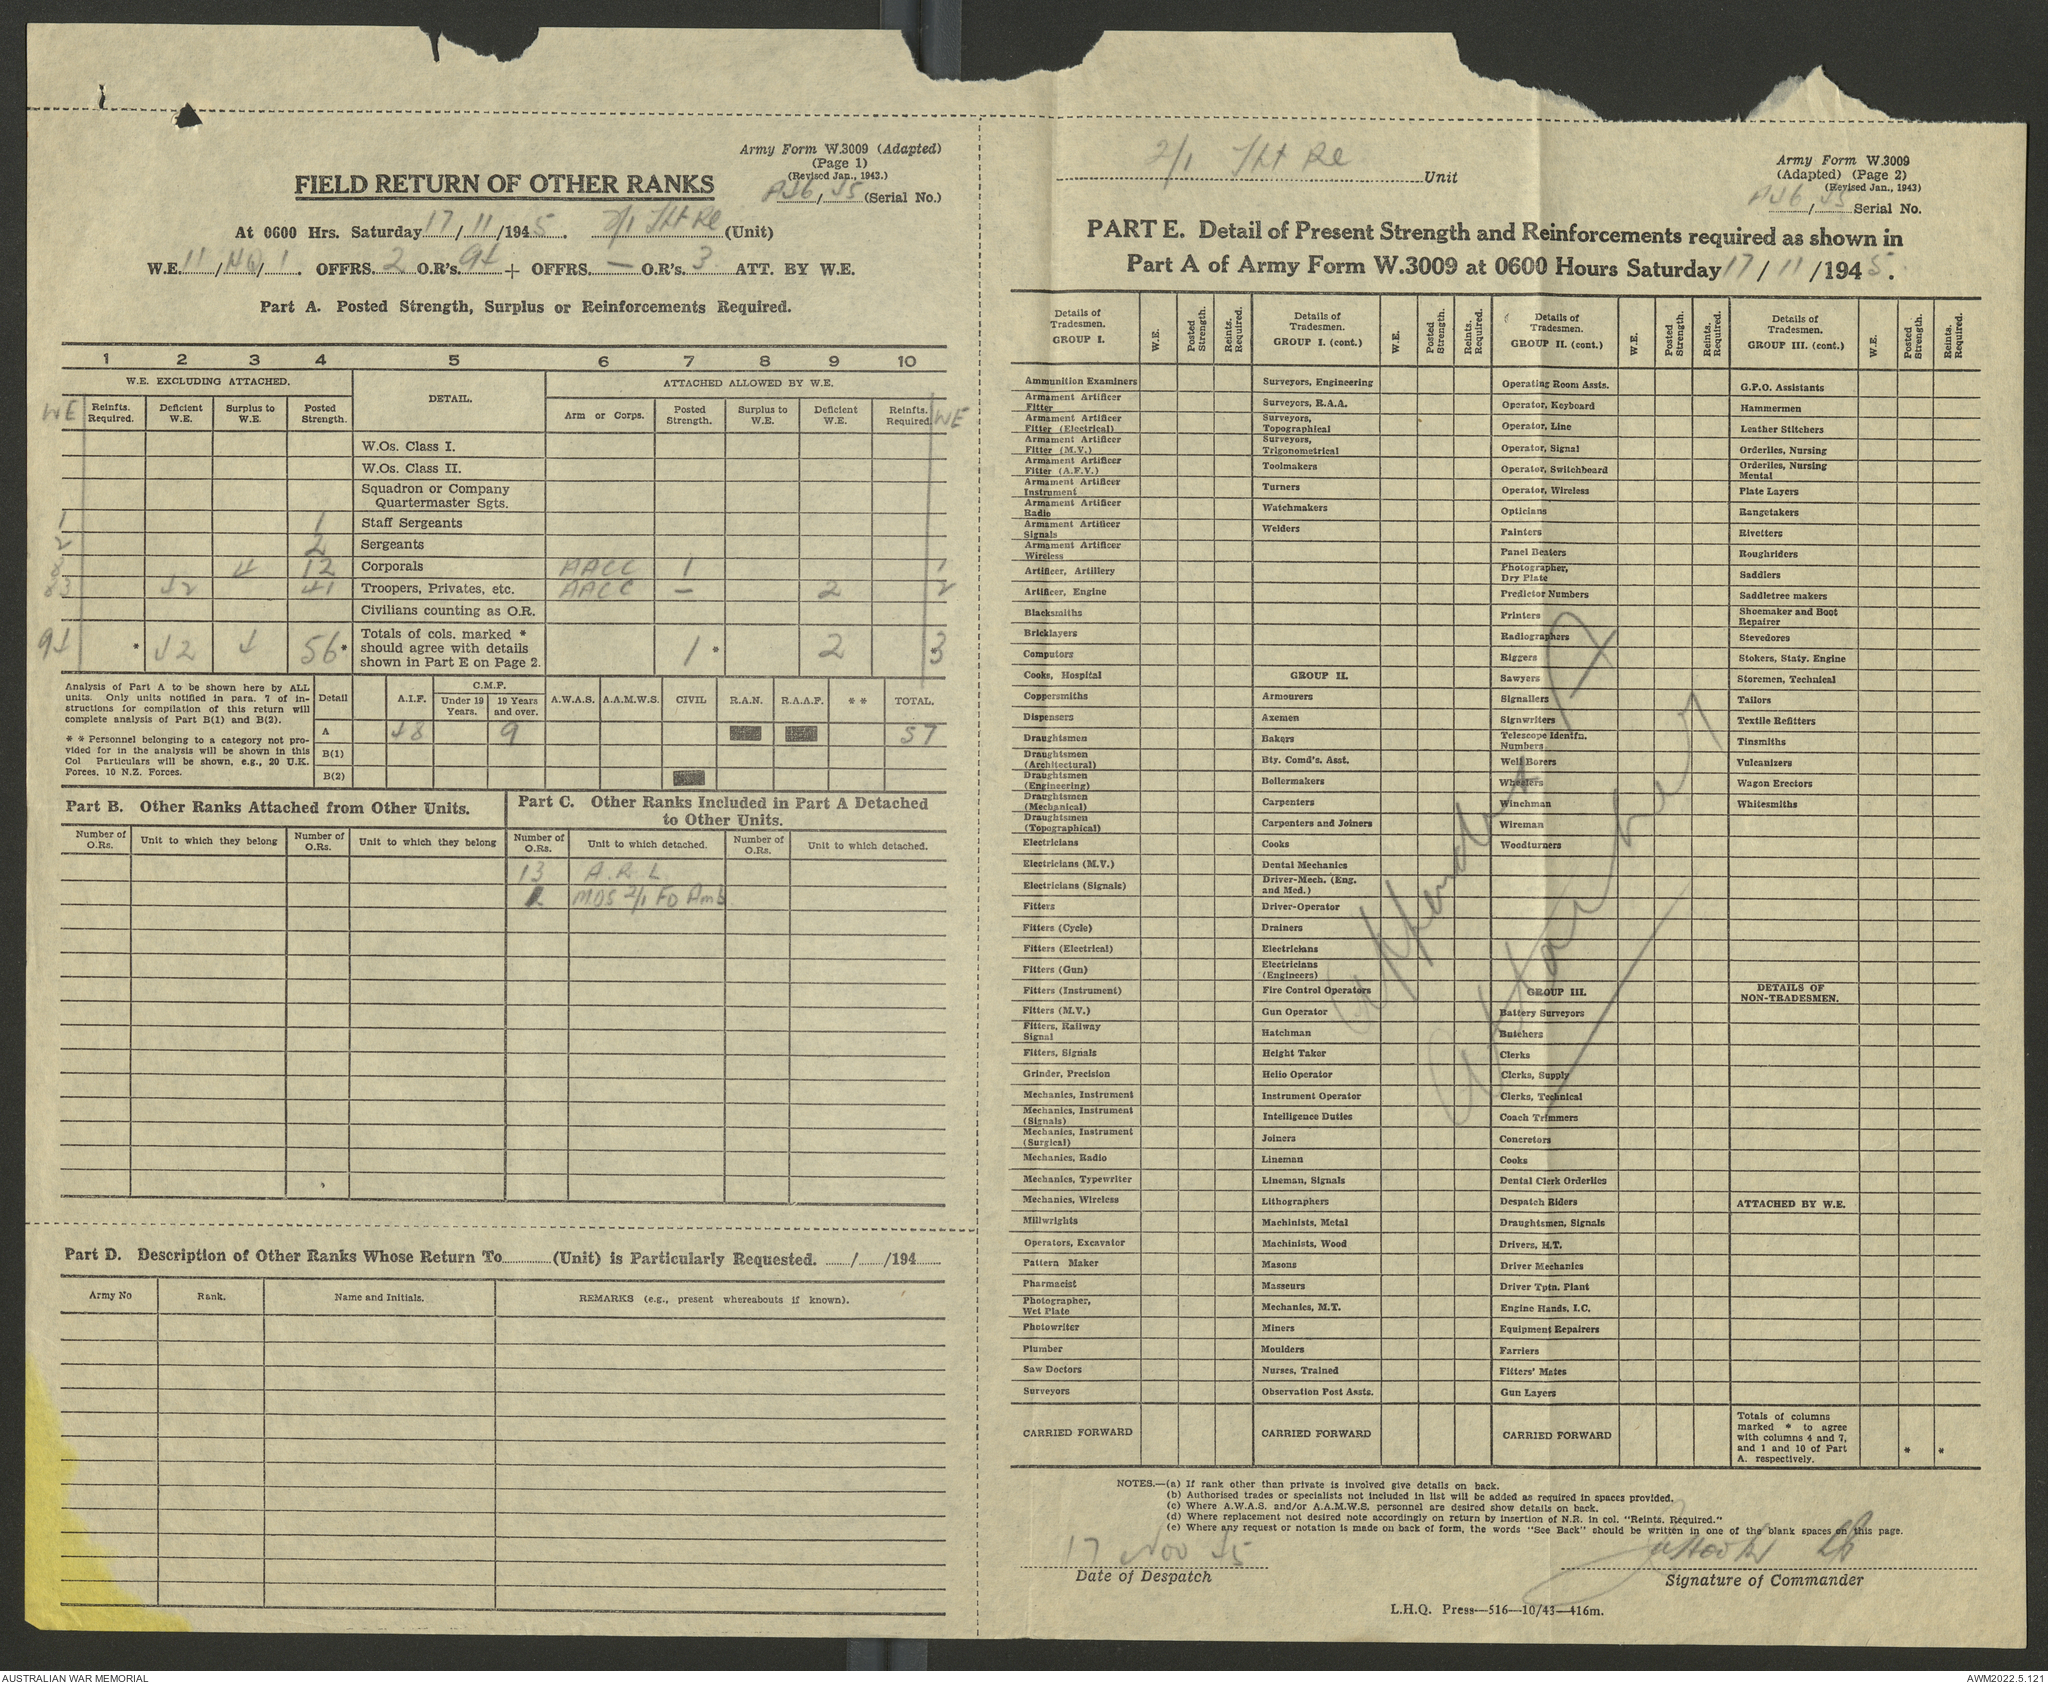 Army Form W.3009 (Adapted)
(Page 1)
(Revised Jan., 1943.)
FIELD RETURN OF OTHER RANKS
AJ6/45 (Serial No.)
At 0600 Hrs. Saturday 17/11/1945. 2/1 (Unit)
W.E. 11/HQ/1. OFFRS. 2 O.R's. 94 + OFFRS. — O.R's. 3 ATT. BY W.E.
Part A. Posted Strength, Surplus or Reinforcements Required.
1 2 3 4 5 6 7 8 9 10
W.E. EXCLUDING ATTACHED. DETAIL. ATTACHED ALLOWED BY W.E.
WE Reinfts. Required. Deficient W.E. Surplus to W.E. Posted Strength. Arm or Corps. Posted Strength. Surplus to W.E. Deficient W.E. Reinfts. Required. WE
W.Os. Class I.
W.Os. Class II.
Squadron or Company
Quartermaster Sgts.
1 1 Staff Sergeants
2 2 Sergeants
8 4 12 Corporals AACC 1 1
83 42 41 Troopers, Privates, etc. AACC — 2 2
Civilians counting as O.R.
94 * 42 4 56* Totals of cols. marked *
should agree with details
shown in Part E on Page 2. 1 * 2 * 3
Analysis of Part A to be shown here by ALL
units. Only units notified in para. 7 of in-
structions for compilation of this return will
complete analysis of Part B(1) and B(2).
* * Personnel belonging to a category not pro-
vided for in the analysis will be shown in this
Col. Particulars will be shown, e.g., 20 U.K.
Forces, 10 N.Z. Forces.
Detail A.I.F. C.M.F. Under 19 Years. 19 Years and over. A.W.A.S. A.A.M.W.S. CIVIL R.A.N. R.A.A.F. * * TOTAL.
A 48 9 57
B(1)
B(2)
Part B. Other Ranks Attached from Other Units.
Part C. Other Ranks Included in Part A Detached
to Other Units.
Number of O.Rs. Unit to which they belong Number of O.Rs. Unit to which they belong Number of O.Rs. Unit to which detached. Number of O.Rs. Unit to which detached.
13 A.R.L.
MDS 2/1 FD Amb
Part D. Description of Other Ranks Whose Return To (Unit) is Particularly Requested. / /194
Army No Rank. Name and Initials. REMARKS (e.g., present whereabouts if known).
2/1 Unit
Army Form W.3009
(Adapted) (Page 2)
(Revised Jan., 1943)
AJ6/45 Serial No.
PART E. Detail of Present Strength and Reinforcements required as shown in
Part A of Army Form W.3009 at 0600 Hours Saturday 17/11/1945.
Details of Tradesmen. GROUP I. W.E. Posted Strength. Reints. Required.
Ammunition Examiners
Armament Artificer Fitter
Armament Artificer Fitter (Electrical)
Armament Artificer Fitter (M.V.)
Armament Artificer Fitter (A.F.V.)
Armament Artificer Instrument
Armament Artificer Radio
Armament Artificer Signals
Armament Artificer Wireless
Artificer, Artillery
Artificer, Engine
Blacksmiths
Bricklayers
Computors
Cooks, Hospital
Coppersmiths
Dispensers
Draughtsmen
Draughtsmen (Architectural)
Draughtsmen (Engineering)
Draughtsmen (Mechanical)
Draughtsmen (Topographical)
Electricians
Electricians (M.V.)
Electricians (Signals)
Fitters
Fitters (Cycle)
Fitters (Electrical)
Fitters (Gun)
Fitters (Instrument)
Fitters (M.V.)
Fitters, Railway Signal
Fitters, Signals
Grinder, Precision
Mechanics, Instrument
Mechanics, Instrument (Signals)
Mechanics, Instrument (Surgical)
Mechanics, Radio
Mechanics, Typewriter
Mechanics, Wireless
Millwrights
Operators, Excavator
Pattern Maker
Pharmacist
Photographer, Wet Plate
Photowriter
Plumber
Saw Doctors
Surveyors
CARRIED FORWARD
Details of Tradesmen. GROUP I. (cont.) W.E. Posted Strength. Reints. Required.
Surveyors, Engineering
Surveyors, R.A.A.
Surveyors, Topographical
Surveyors, Trigonometrical
Toolmakers
Turners
Watchmakers
Welders
GROUP II.
Armourers
Axemen
Bakers
Bty. Comd's. Asst.
Boilermakers
Carpenters
Carpenters and Joiners
Cooks
Dental Mechanics
Driver-Mech. (Eng. and Med.)
Driver-Operator
Drainers
Electricians
Electricians (Engineers)
Fire Control Operators
Gun Operator
Hatchman
Height Taker
Helio Operator
Instrument Operator
Intelligence Duties
Joiners
Lineman
Lineman, Signals
Lithographers
Machinists, Metal
Machinists, Wood
Masons
Masseurs
Mechanics, M.T.
Miners
Moulders
Nurses, Trained
Observation Post Assts.
CARRIED FORWARD
Details of Tradesmen. GROUP II. (cont.) W.E. Posted Strength. Reints. Required.
Operating Room Assts.
Operator, Keyboard
Operator, Line
Operator, Signal
Operator, Switchboard
Operator, Wireless
Opticians
Painters
Panel Beaters
Photographer, Dry Plate
Predictor Numbers
Printers
Radiographers
Riggers
Sawyers
Signallers
Signwriters
Telescope Identfn. Numbers
Well Borers
Wheelers
Winchman
Wireman
Woodturners
GROUP III.
Battery Surveyors
Butchers
Clerks
Clerks, Supply
Clerks, Technical
Coach Trimmers
Concretors
Cooks
Dental Clerk Orderlies
Despatch Riders
Draughtsmen, Signals
Drivers, H.T.
Driver Mechanics
Driver Tptn. Plant
Engine Hands, I.C.
Equipment Repairers
Farriers
Fitters' Mates
Gun Layers
CARRIED FORWARD
Details of Tradesmen. GROUP III. (cont.) W.E. Posted Strength. Reints. Required.
G.P.O. Assistants
Hammermen
Leather Stitchers
Orderlies, Nursing
Orderlies, Nursing Mental
Plate Layers
Rangetakers
Rivetters
Roughriders
Saddlers
Saddletree makers
Shoemaker and Boot Repairer
Stevedores
Stokers, Staty. Engine
Storemen, Technical
Tailors
Textile Refitters
Tinsmiths
Vulcanizers
Wagon Erectors
Whitesmiths
DETAILS OF NON-TRADESMEN.
ATTACHED BY W.E.
Totals of columns
marked * to agree
with columns 4 and 7,
and 1 and 10 of Part
A. respectively. * *
Appendix A
attached
NOTES.—(a) If rank other than private is involved give details on back.
(b) Authorised trades or specialists not included in list will be added as required in spaces provided.
(c) Where A.W.A.S. and/or A.A.M.W.S. personnel are desired show details on back.
(d) Where replacement not desired note accordingly on return by insertion of N.R. in col. "Reints. Required."
(e) Where any request or notation is made on back of form, the words "See Back" should be written in one of the blank spaces on this page.
17 Nov 45
Date of Despatch
Signature of Commander
L.H.Q. Press—516—10/43—416m.
AUSTRALIAN WAR MEMORIAL
AWM2022.5.121